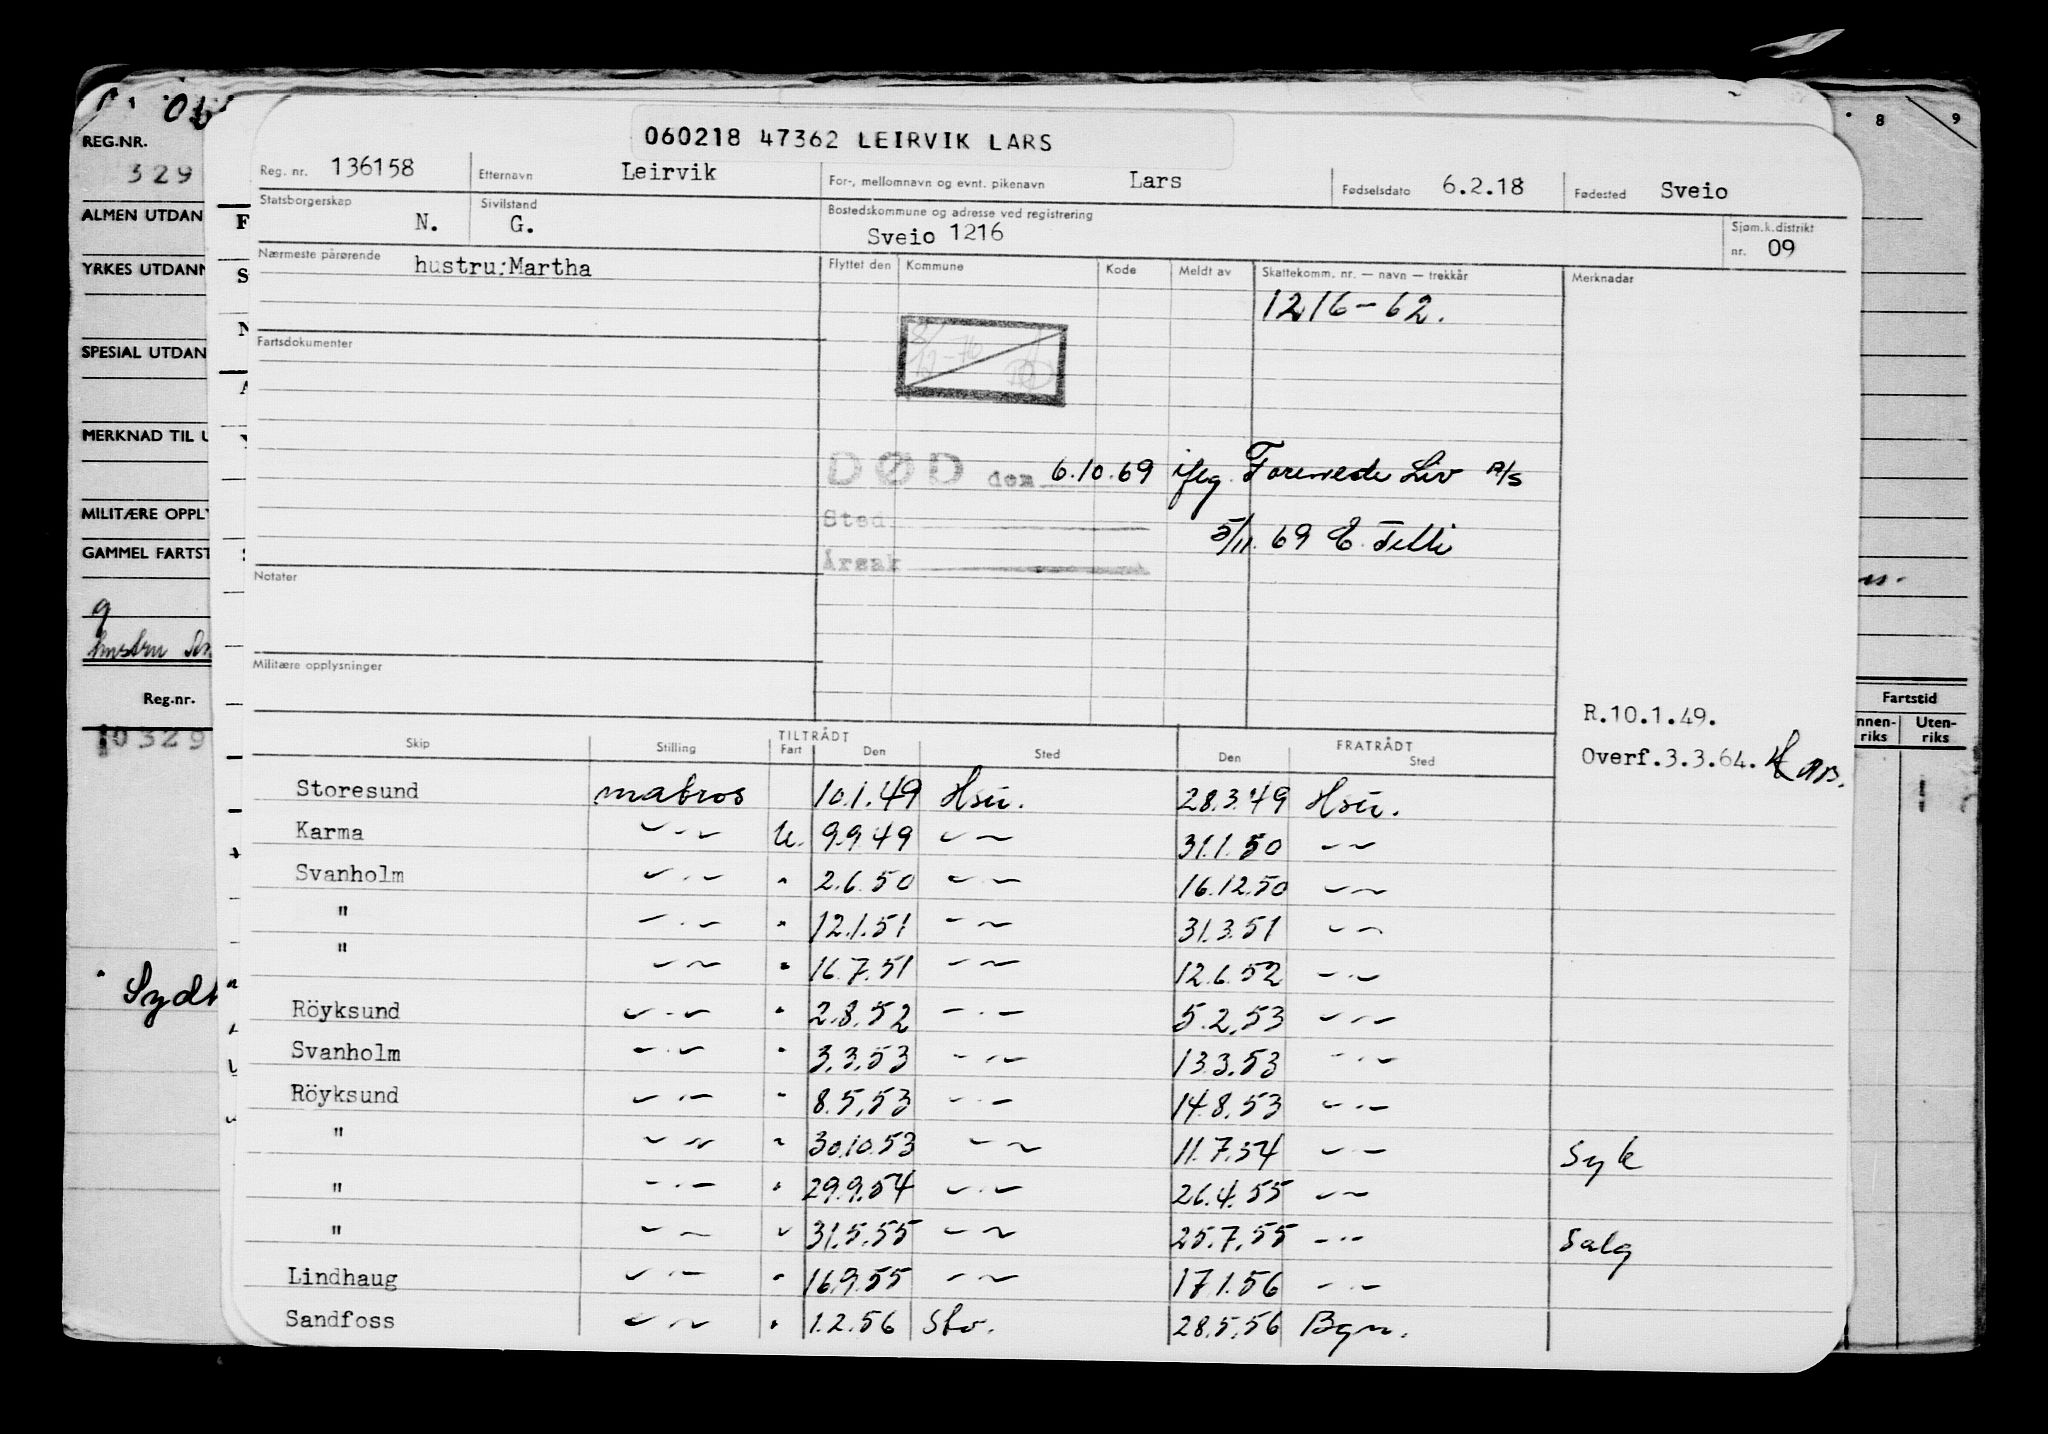 060218 47362 LEIRVIK LARS
Reg. nr. 136158 Etternavn Leirvik For-, mellomnavn og evnt. pikenavn Lars Fødselsdato 6.2.18 Fødested Sveio
Statsborgerskap N. Sivilstand G. Bostedskommune og adresse ved registrering Sveio 1216 Sjøm.k.distrikt nr. 09
Nærmeste pårørende hustru:Martha Flyttet den Kommune Kode Meldt av Skattekomm. nr. — navn — trekkår Merknadar
1216-62.
Fartsdokumenter
DØD den 6.10.69 iflg. Forenede Liv A/S
Sted 5/11.69 E.
Årsak
Notater
Militære opplysninger
R.10.1.49.
Overf.3.3.64.
TILTRÅDT FRATRÅDT
Skip Stilling Fart Den Sted Den Sted
Storesund matros 10.1.49 Hsu. 28.3.49 Hsu.
Karma -"- U. 9.9.49 -"- 31.1.50 -"-
Svanholm -"- " 2.6.50 -"- 16.12.50 -"-
" -"- " 12.1.51 -"- 31.3.51 -"-
" -"- " 16.7.51 -"- 12.6.52 -"-
Röyksund -"- " 2.8.52 -"- 5.2.53 -"-
Svanholm -"- " 3.3.53 -"- 13.3.53 -"-
Röyksund -"- " 8.5.53 -"- 14.8.53 -"-
" -"- " 30.10.53 -"- 11.7.54 -"- Syk
" -"- " 29.9.54 -"- 26.4.55 -"-
" -"- " 31.5.55 -"- 25.7.55 -"- Salg
Lindhaug -"- " 16.9.55 -"- 17.1.56 -"-
Sandfoss -"- " 1.2.56 Sto. 28.5.56 Bgn.
REG.NR.
329
ALMEN UTDAN
YRKES UTDANN
SPESIAL UTDAN
MERKNAD TIL U
MILITÆRE OPPLY
GAMMEL FARTST
9
hustru
Reg.nr.
0329
Sydh
8 9
Fartstid
nnen-riks Uten-riks